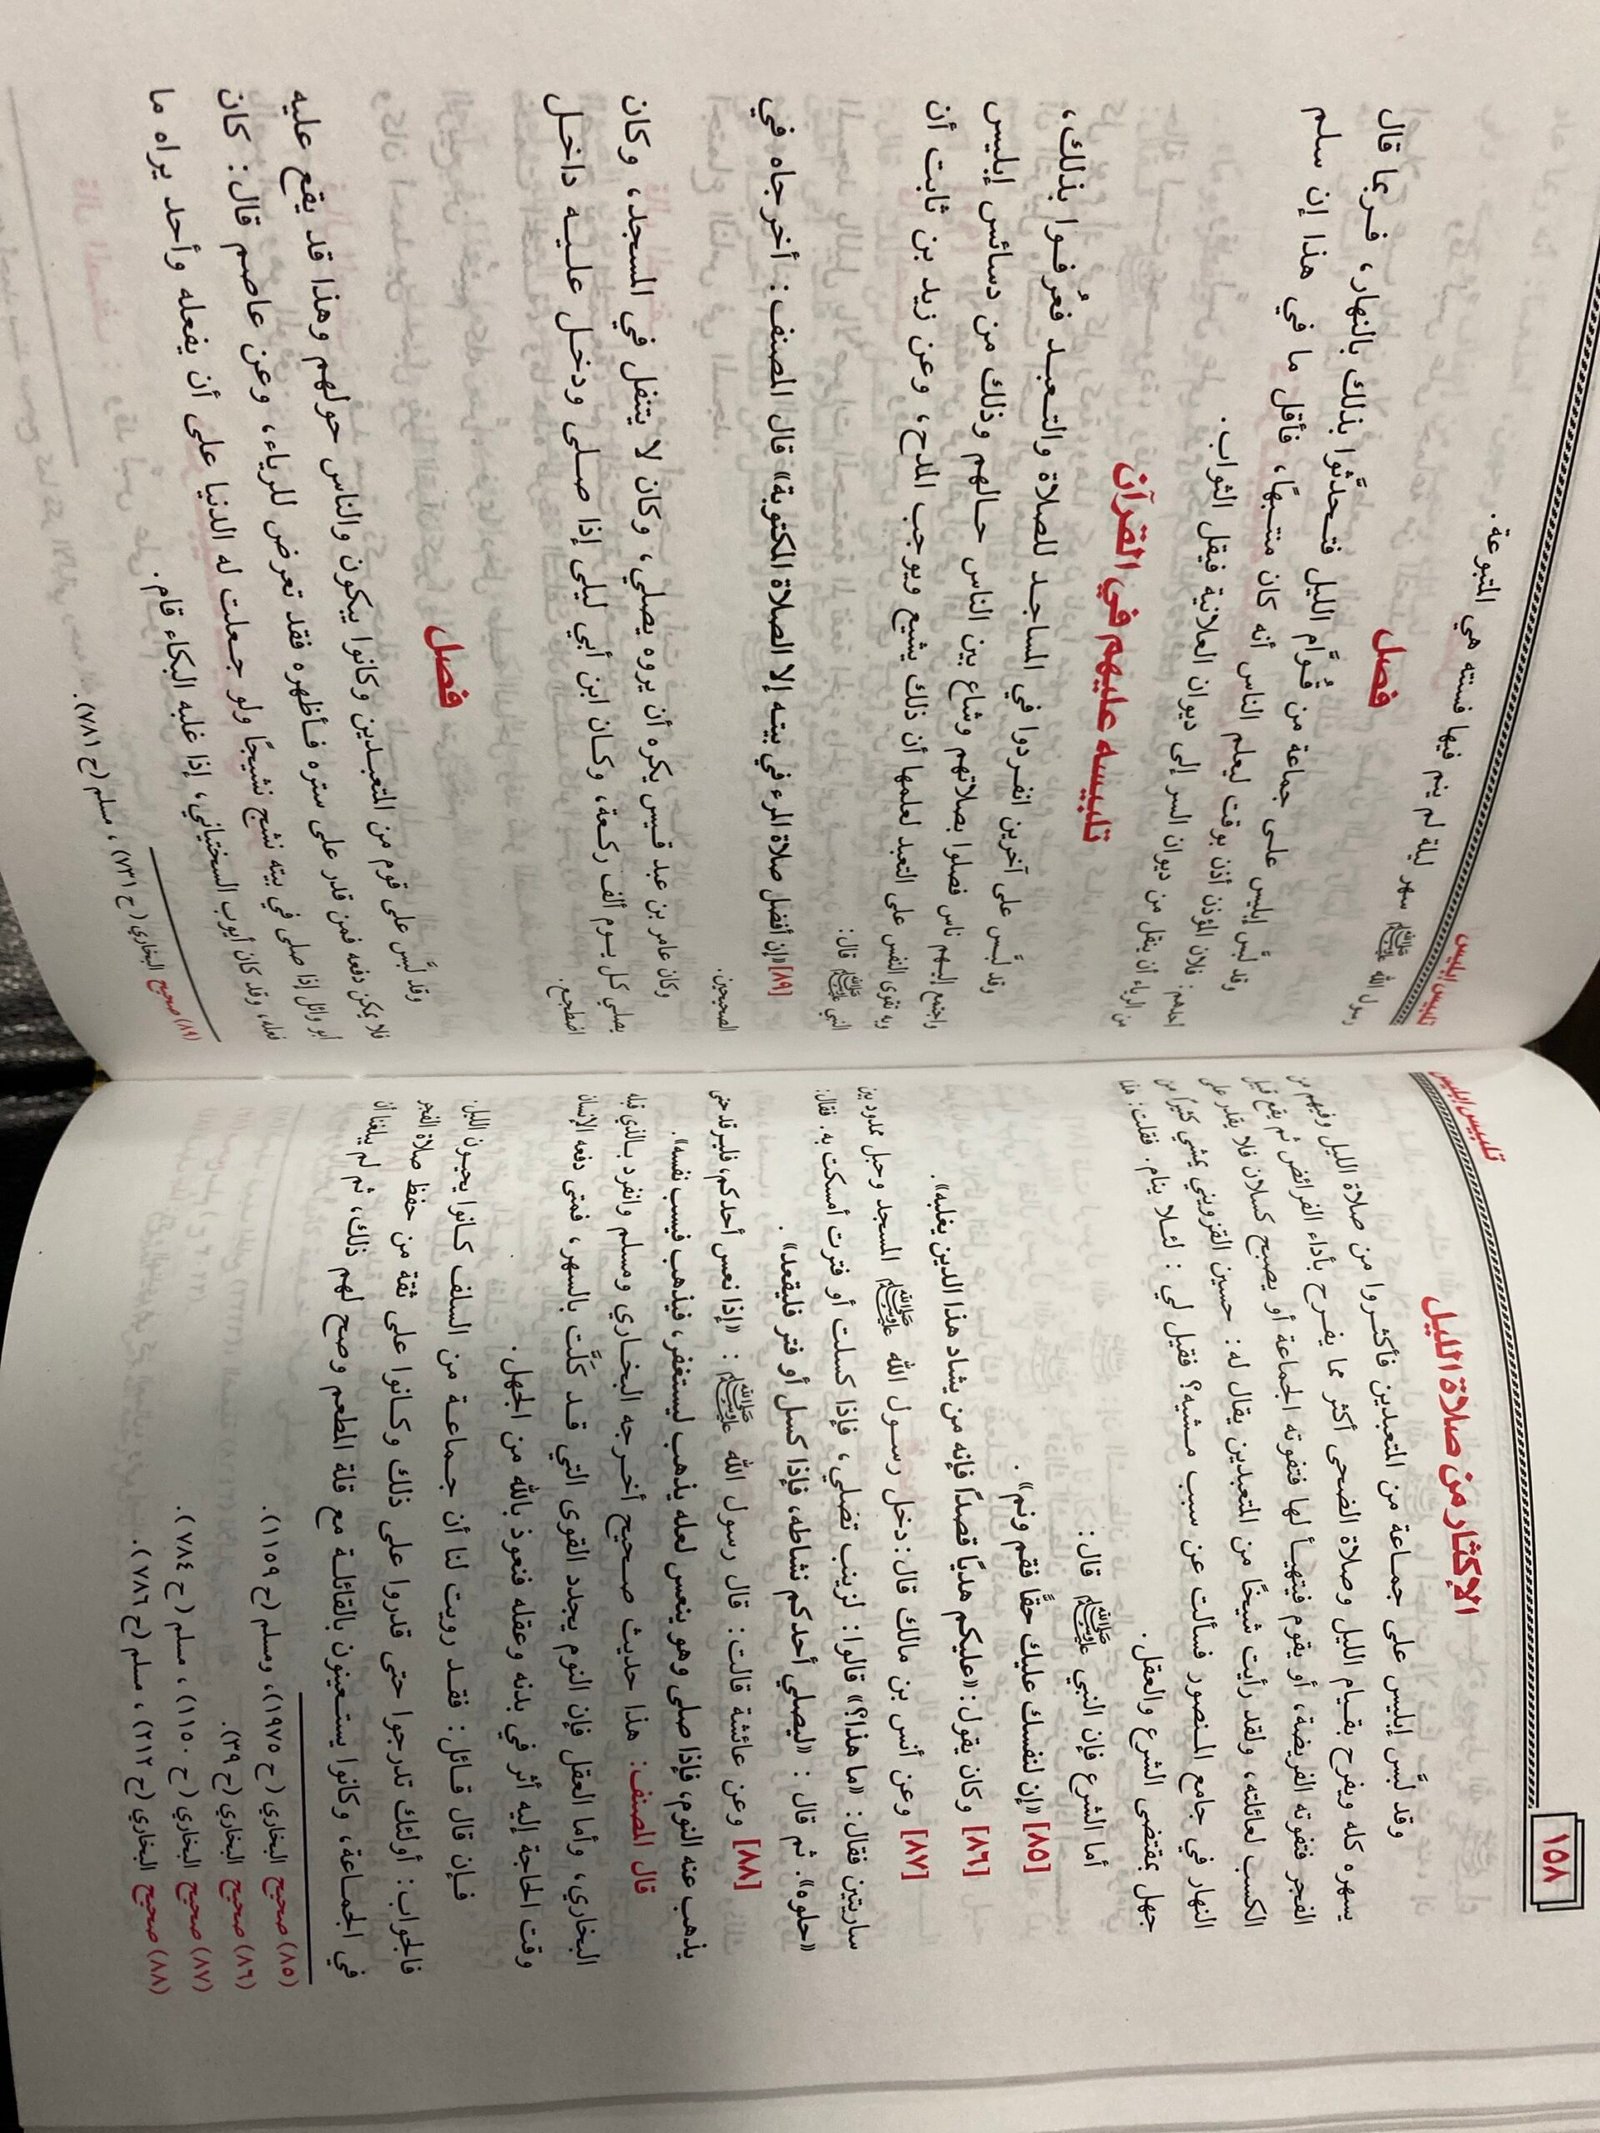 ١٥٨
تلبيس إبليس
الإكثار من صلاة الليل
وقد لبَّس إبليس على جماعة من المتعبدين فأكثروا من صلاة الليل وفيهم من
يسهره كله ويفرح بقيام الليل وصلاة الضحى أكثر مما يفرح بأداء الفرائض ثم يقع قبيل
الفجر فتفوته الفريضة، أو يقوم فيتهيأ لها فتفوته الجماعة أو يصبح كسلان فلا يقدر على
الكسب لعائلته، ولقد رأيت شيخًا من المتعبدين يقال له: حسين القزويني يمشي كثيرًا من
النهار في جامع المنصور فسألت عن سبب مشيه؟ فقيل لي: لئلا ينام. فقلت: هذا
جهل بمقتضى الشرع والعقل.
أما الشرع فإن النبي ﷺ قال:
[٨٥] «إن لنفسك عليك حقًّا فقم ونم».
[٨٦] وكان يقول: «عليكم هديًا قصدًا فإنه من يشاد هذا الدين يغلبه».
[٨٧] وعن أنس بن مالك قال: دخل رسول الله ﷺ المسجد وحبل ممدود بين
ساريتين فقال: «ما هذا؟» قالوا: لزينب تصلي، فإذا كسلت أو فترت أمسكت به. فقال:
«حلوه». ثم قال: «ليصلي أحدكم نشاطه، فإذا كسل أو فتر فليقعد».
[٨٨] وعن عائشة قالت: قال رسول الله ﷺ: «إذا نعس أحدكم، فليرقد حتى
يذهب عنه النوم، فإذا صلى وهو ينعس لعله يذهب ليستغفر، فيذهب فيسب نفسه».
قال المصنف: هذا حديث صحيح أخرجه البخاري ومسلم وانفرد بالذي قبله
البخاري، وأما العقل فإن النوم يجدد القوى التي قد كَلَّت بالسهر، فمتى دفعه الإنسان
وقت الحاجة إليه أثر في بدنه وعقله فنعوذ بالله من الجهل.
فإن قال قائل: فقد رويت لنا أن جماعة من السلف كانوا يحيون الليل.
فالجواب: أولئك تدرجوا حتى قدروا على ذلك وكانوا على ثقة من حفظ صلاة الفجر
في الجماعة، وكانوا يستعينون بالقائلة مع قلة المطعم وصح لهم ذلك، ثم لم يبلغنا أن
(٨٥) صحيح البخاري (ح ١٩٧٥)، ومسلم (ح ١١٥٩).
(٨٦) صحيح البخاري (ح ٣٩).
(٨٧) صحيح البخاري (ح ١١٥٠)، مسلم (ح ٧٨٤).
(٨٨) صحيح البخاري (ح ٢١٢)، مسلم (ح ٧٨٦).
تلبيس إبليس
رسول الله ﷺ سهر ليلة لم ينم فيها فسنته هي المتبوعة.
فصل
وقد لبَّس إبليس على جماعة من قُوَّام الليل فتحدثُوا بذلك بالنهار، فربما قال
أحدهم: فلان المؤذن أذن بوقت ليعلم الناس أنه كان منتبهًا، فأقل ما في هذا إن سلم
من الرياء أن ينقل من ديوان السر إلى ديوان العلانية فيقل الثواب.
تلبيسه عليهم في القرآن
وقد لبَّس على آخرين انفردوا في المساجد للصلاة والتعبد فعرفُوا بذلك،
واجتمع إليهم ناس فصلوا بصلاتهم وشاع بين الناس حالهم وذلك من دسائس إبليس
وبه تقوى النفس على التعبد لعلمها أن ذلك يشيع ويوجب المدح، وعن زيد بن ثابت أن
النبي ﷺ قال:
[٨٩] «إن أفضل صلاة المرء في بيته إلا الصلاة المكتوبة» قال المصنف: أخرجاه في
الصحيحين.
وكان عامر بن عبد قيس يكره أن يروه يصلي، وكان لا يتنفل في المسجد، وكان
يصلي كل يوم ألف ركعة، وكان ابن أبي ليلى إذا صلى ودخل عليه داخل
اضطجع.
فصل
وقد لبَّس على قوم من المتعبدين وكانوا يبكون والناس حولهم وهذا قد يقع عليه
فلا يمكن دفعه فمن قدر على ستره فأظهره فقد تعرض للرياء، وعن عاصم قال: كان
أبو وائل إذا صلى في بيته نشج نشيجًا ولو جعلت له الدنيا على أن يفعله وأحد يراه ما
فعله، وقد كان أيوب السختياني، إذا غلبه البكاء قام.
(٨٩) صحيح البخاري (ح ٧٣١)، مسلم (ح ٧٨١).